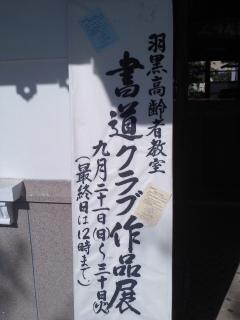 羽黒高齢者教室
書道クラブ作品展
九月二十一日(日)～三十日(火)
(最終日は12時まで)